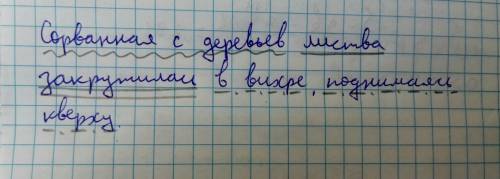 Сорванная с деревьев листва
закружилась в вихре, поднимаясь
кверху.